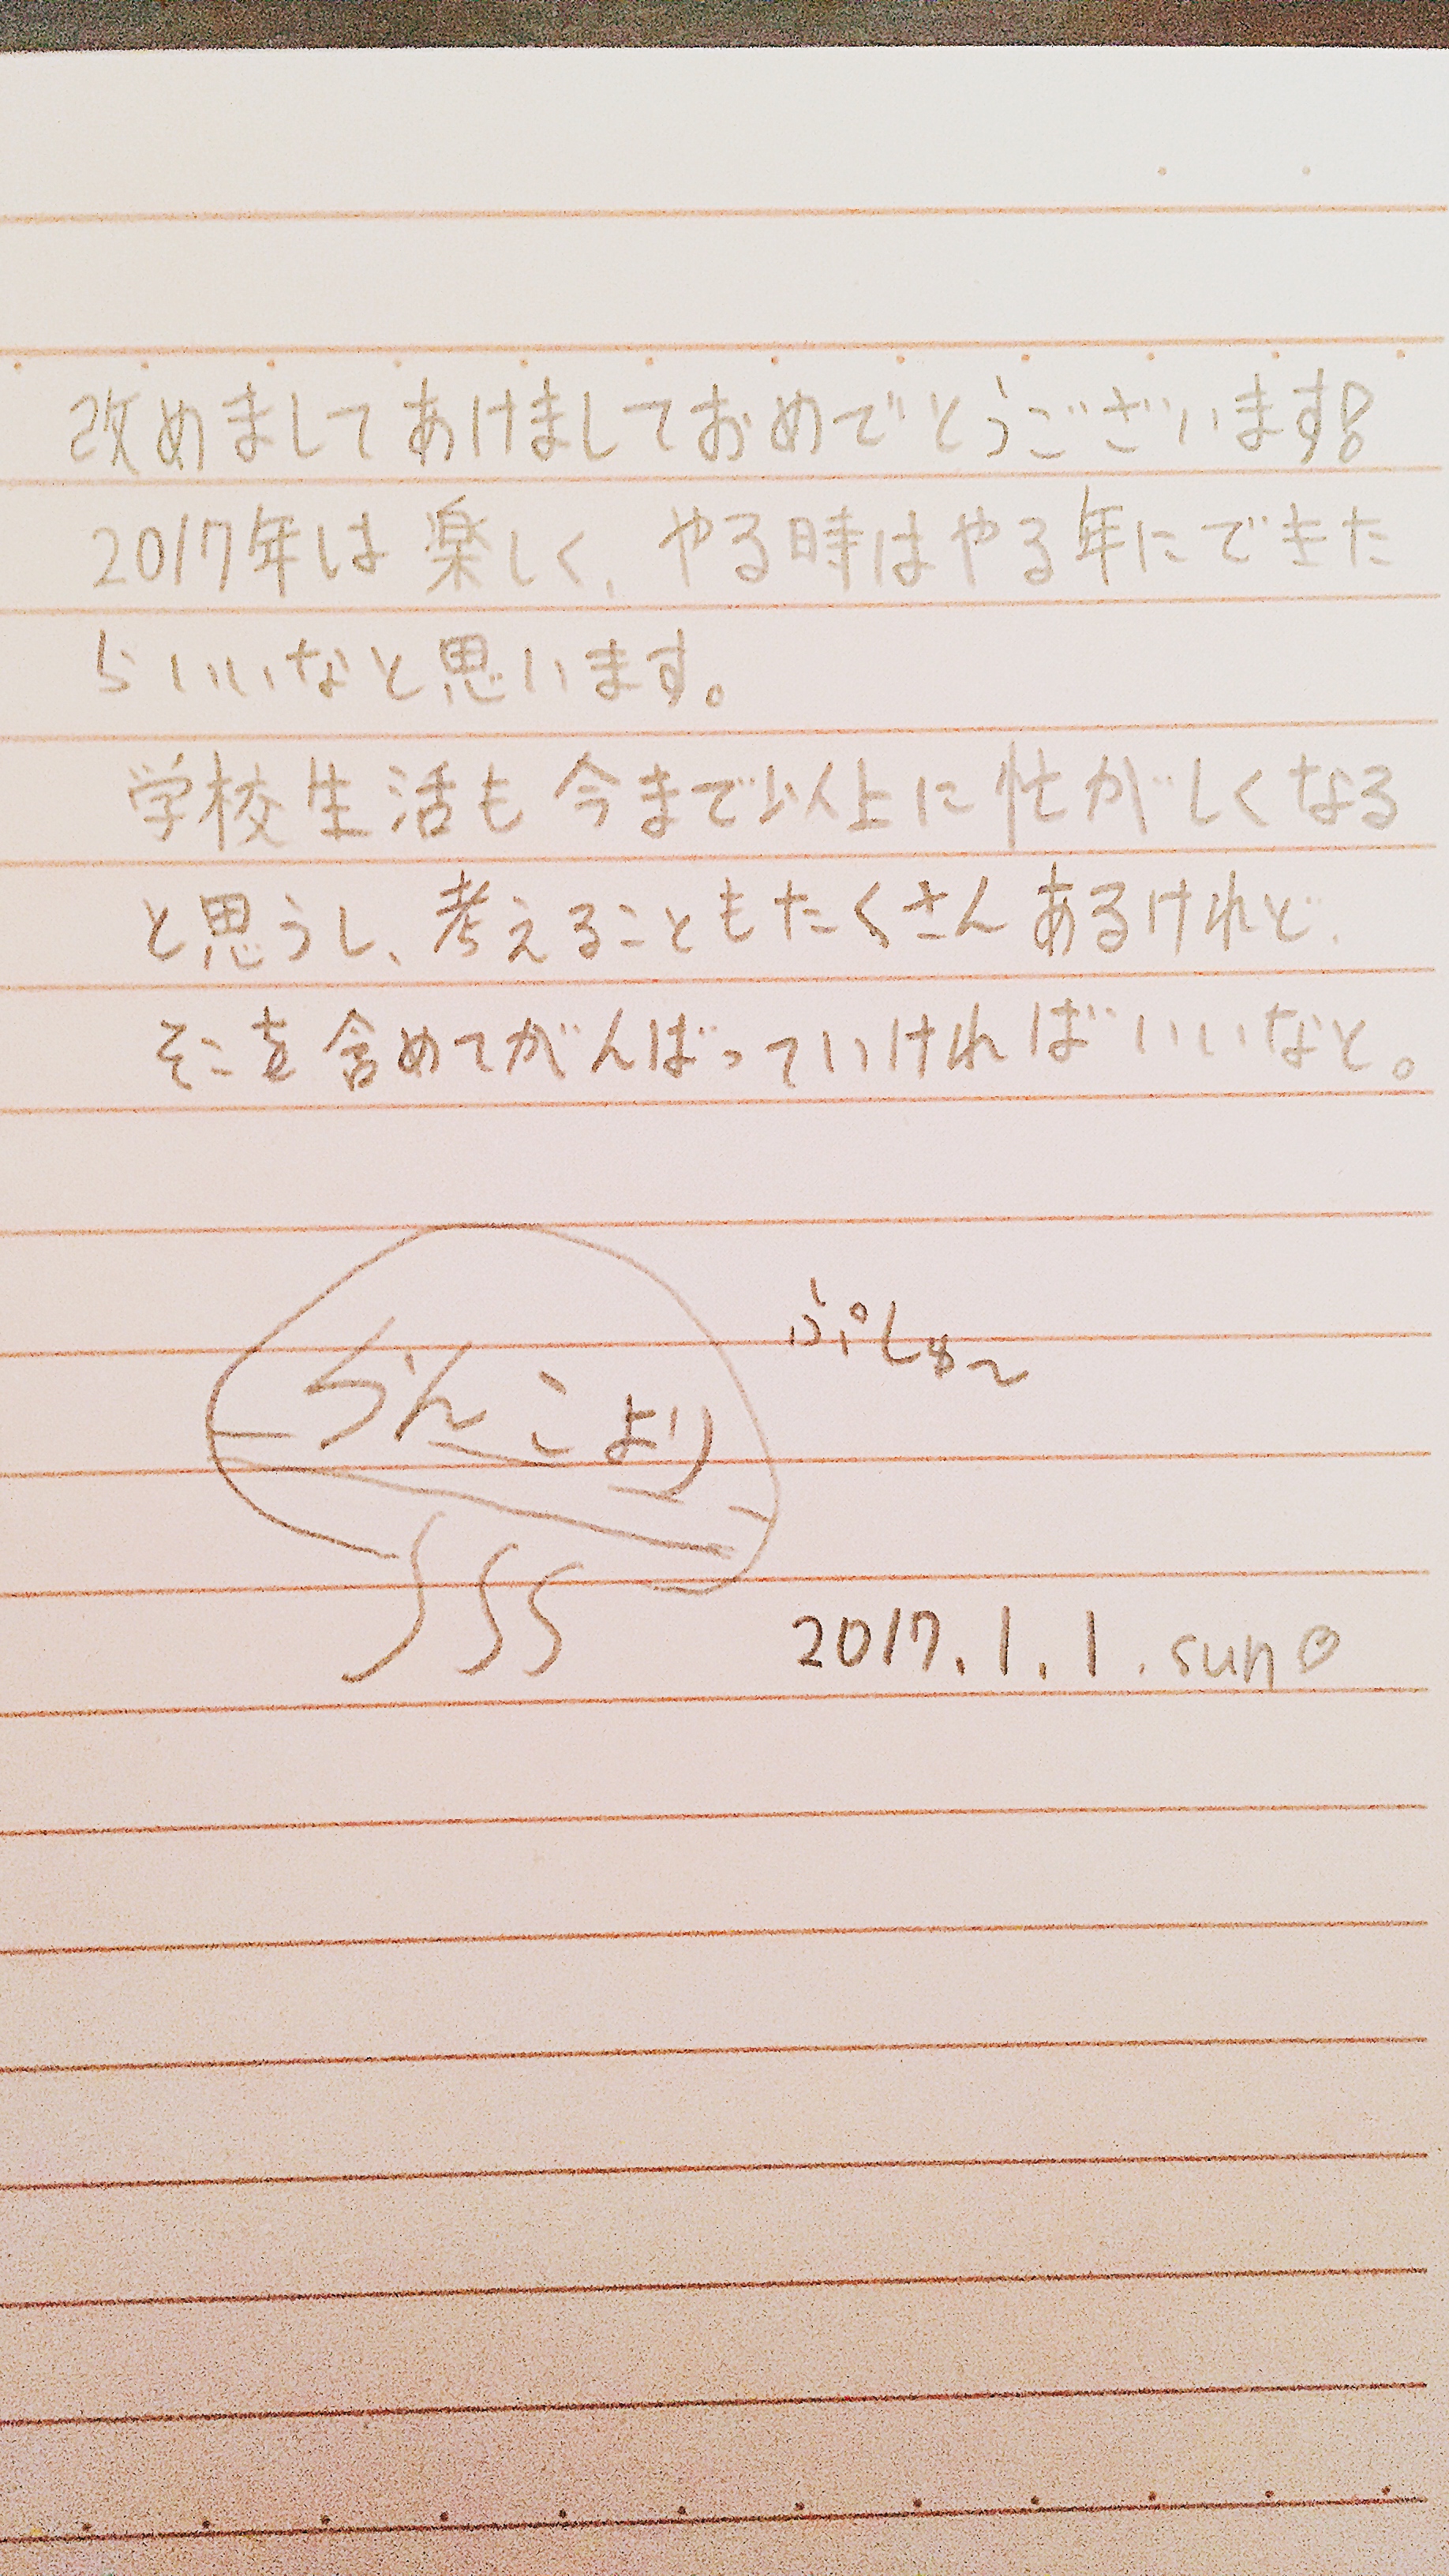 改めましてあけましておめでとうございます!
2017年は楽しく、やる時はやる年にできた
らいいなと思います。
学校生活も今まで以上に忙がしくなる
と思うし、考えることもたくさんあるけれど、
そこを含めてがんばっていければいいなと。
らんこより
ぷしゅ〜
2017.1.1.sun